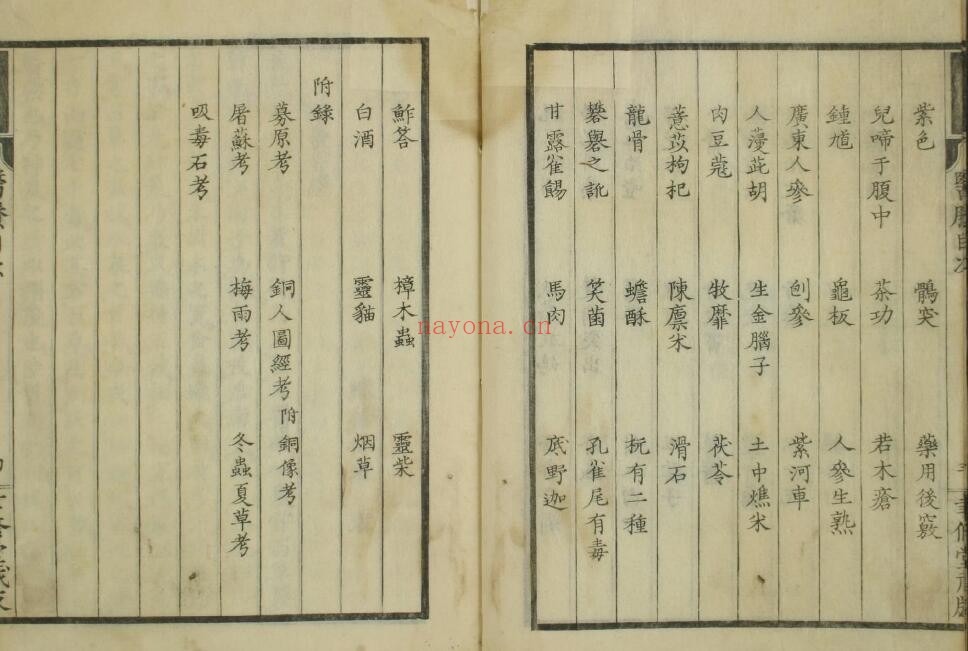 紫色 鶻突 藥用後竅
兒啼于腹中 茶功 若木瘡
鍾馗 龜板 人參生熟
廣東人參 刨參 紫河車
人薓茈胡 生金腦子 土中燋米
肉豆蔻 牧靡 茯苓
薏苡枸杞 陳廪米 滑石
龍骨 蟾酥 柅有二種
礬礜之訛 笑菌 孔雀尾有毒
甘露雀餳 馬肉 底野迦
鮓答 樟木蟲 靈柴
白酒 靈貓 烟草
附錄
募原考 銅人圖經考 附銅像考
屠蘇考 梅雨考 冬蟲夏草考
吸毒石考
nayona.cn